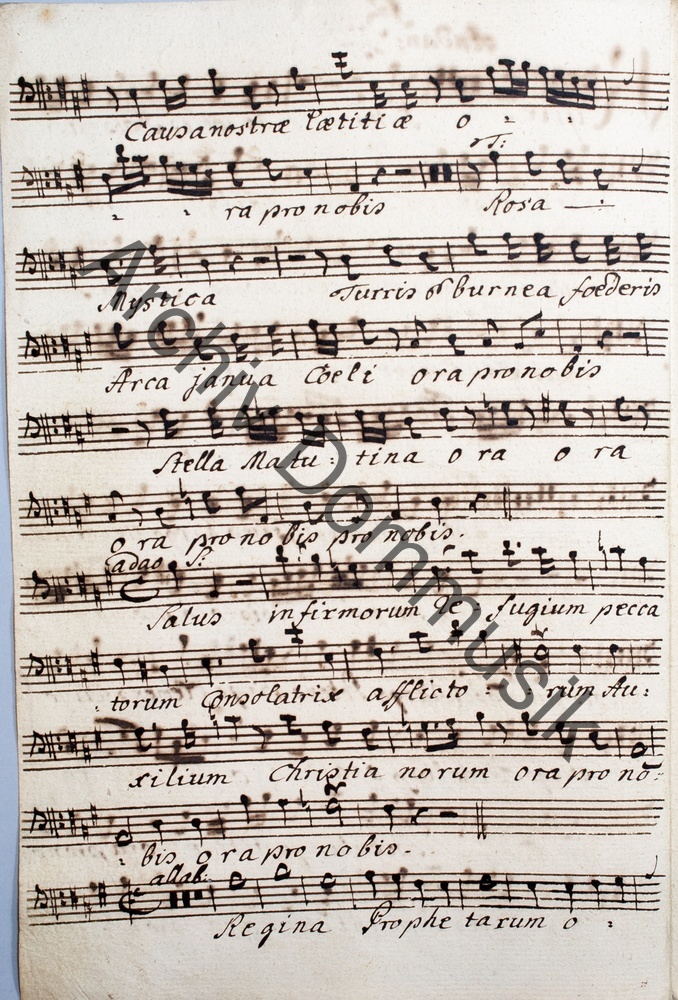 Causa nostræ lætitiæ o - -
T:
- - ra pro nobis Rosa
Mystica Turris eburnea foederis
Arca janua Coeli ora pro nobis
Stella Matu: tina ora o ra
o ra pro no bis pro nobis.
adao S:
Salus infirmorum Re: fugium pecca
- torum Consolatrix afflicto - - rum Au:
xilium Christia norum ora pro no:
: bis ora pro nobis.
allab:
Regina Prophe tarum o :
Archiv Dommusik